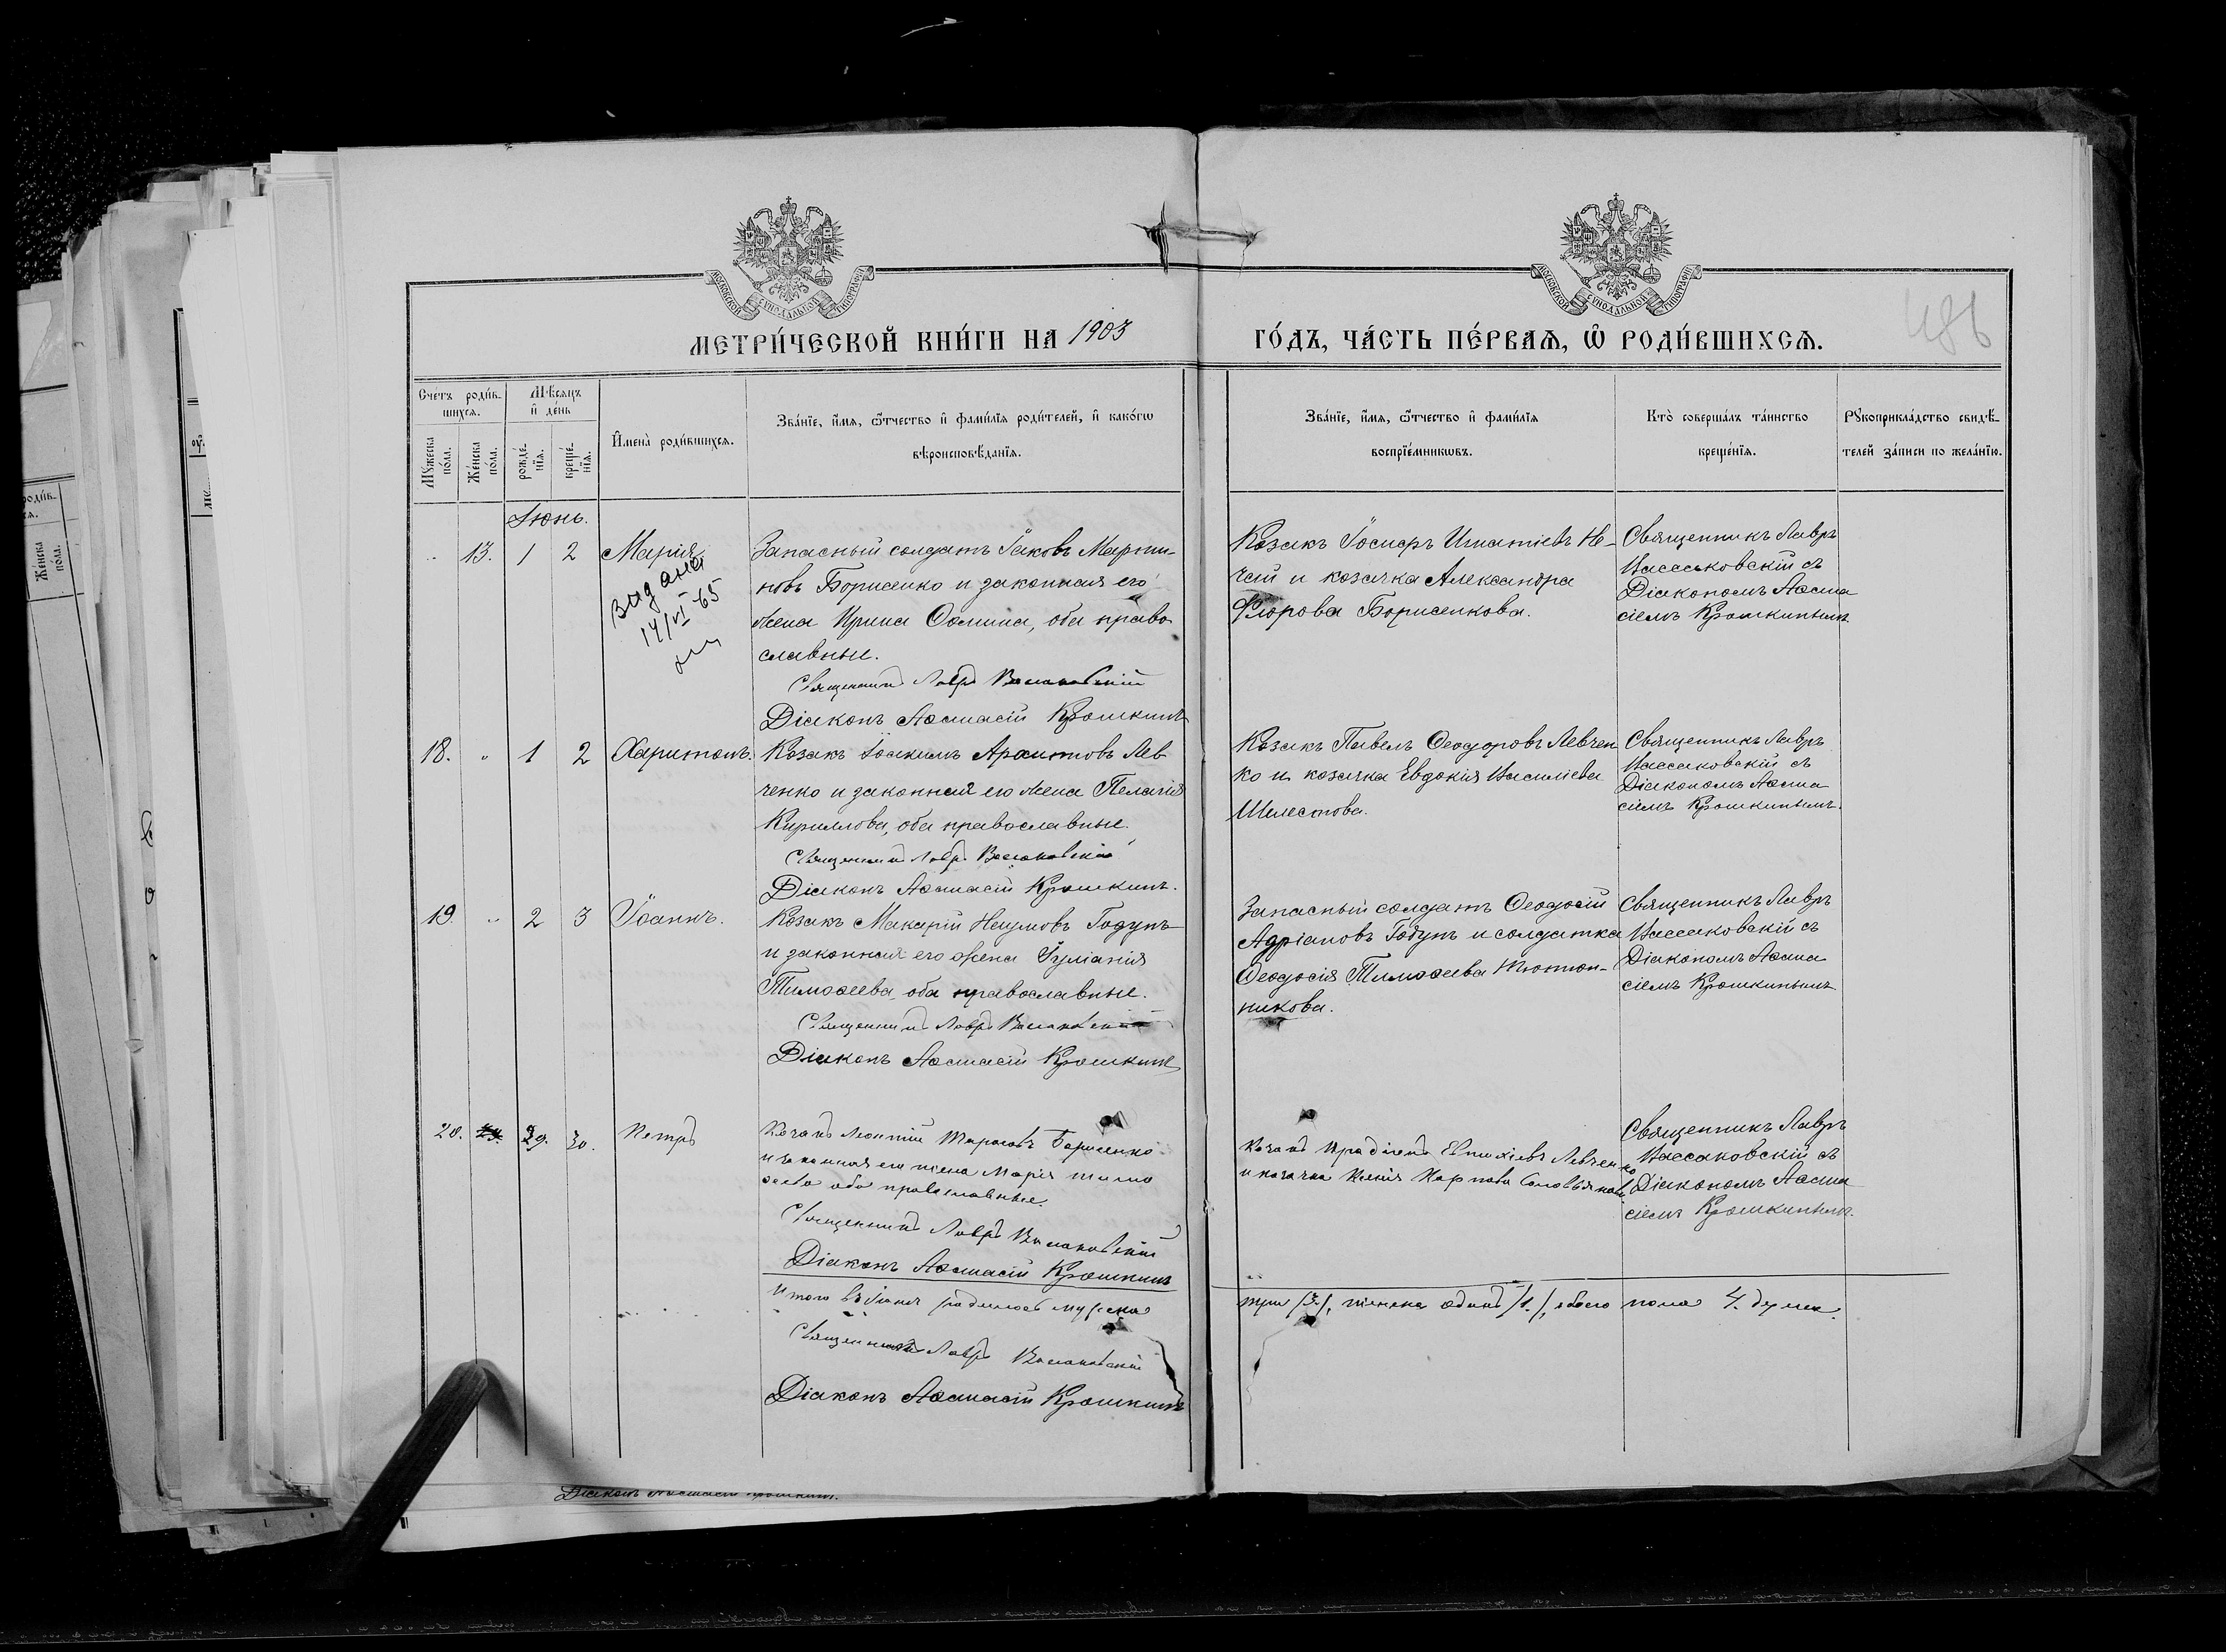 МОСКОВСКОЙ СУНОДАЛЬНОЙ ТИПОГРАФІИ
МОСКОВСКОЙ СУНОДАЛЬНОЙ ТИПОГРАФІИ
МЕТРИ́ЧЕСКОЙ КНИ́ГИ НА 1903
ГО́ДЪ, ЧА́СТЬ ПЕ́РВАѦ, Ѡ҆ РОДИ́ВШИХСѦ.
486
Сче́тъ роди́вшихсѧ.
Мꙋ́жеска по́ла.
Же́нска по́ла.
Мѣ́сѧцъ и҆ де́нь
рожде́нїѧ.
креще́нїѧ.
И҆мена̀ роди́вшихсѧ.
Зва́нїе, и҆́мѧ, ѻ҆́тчество и҆ фами́лїѧ роди́телей, и҆ како́гѡ
вѣроисповѣ́данїѧ.
Зва́нїе, и҆́мѧ, ѻ҆́тчество и҆ фами́лїѧ
воспрїе́мникѡвъ.
Кто̀ соверша́лъ та́инство
креще́нїѧ.
Рꙋкоприкла́дство свидѣ́телей за́писи по жела́нїю.
Іюнь.
13. 1 2 Марія
Видана
14/VI-65
Запасный солдатъ Іаковъ Марти-
новъ Борисенко и законная его
жена Ирина Ѳомина, оба право
славные.
Священникъ Лавръ Вассаковскій
Діаконъ Аѳанасій Крошкинъ
Козакъ Іосифъ Игнатіевъ Не-
чай и козачка Александра
Флорова Борисенкова.
Священникъ Лавръ
Вассаковскій съ
Діакономъ Аѳана
сіемъ Крошкинымъ.
18. 1 2 Харитонъ.
Козакъ Іоакимъ Лев
ченко и законная его жена Пелагія
Кириллова, оба православные.
Священникъ Лавръ Вассаковскій
Діаконъ Аѳанасій Крошкинъ.
Козакъ Павелъ Ѳеодоровъ Левчен
ко и козачка Евдокія Василіева
Шелестова.
Священникъ Лавръ
Вассаковскій съ
Діакономъ Аѳана
сіемъ Крошкинымъ.
19. 2 3 Іоаннъ.
Козакъ Макарій Наумовъ Годунъ
и законная его жена Іуліанія
Тимоѳеева, оба православные.
Священникъ Лавръ Вассаковскій
Діаконъ Аѳанасій Крошкинъ
Запасный солдатъ Ѳеодосій
Адріановъ Годунъ и солдатка
Ѳеодосія Тимоѳеева Тютюн-
никова.
Священникъ Лавръ
Вассаковскій съ
Діакономъ Аѳана
сіемъ Крошкинымъ
20. 29. 30. Петръ
Козакъ Леонтій Тарасовъ Борисенко
и законная его жена Марія Тимо
ѳеева оба православные.
Священникъ Лавръ Вассаковскій
Діаконъ Аѳанасій Крошкинъ
Козакъ Левченко
и козачка Ксенія Карпова
Священникъ Лавръ
Вассаковскій съ
Діакономъ Аѳана
сіемъ Крошкинымъ.
Итого въ Іюнѣ родилось мужска
три /3/, женска одинъ /1./, обоего пола 4. души.
Священникъ Лавръ Вассаковскій
Діаконъ Аѳанасій Крошкинъ
Діаконъ Аѳанасій Крошкинъ.